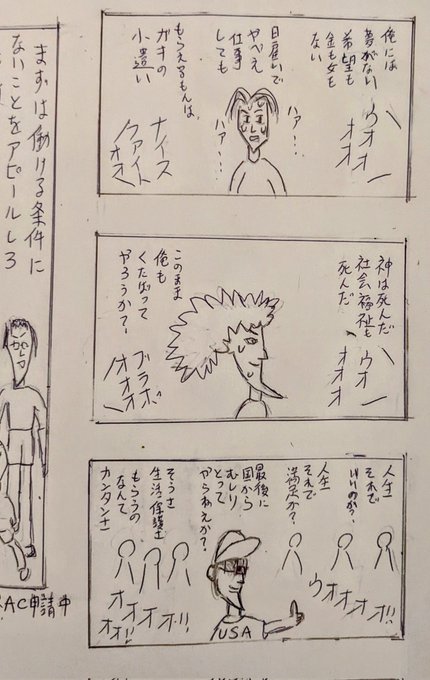 俺には
夢がない
希望も
金も女も
ない
ウオー
オオ
ハァー…
ハァー…
日雇いで
やべえ
仕事
しても
もらえるもんは、
ガキの
小遣い
ナイス
ファイト
オオ
神は死んだ
社会福祉も
死んだ
ウオー
オオオ
このまま
俺も
くたばって
やろうか?
ブラボー
オオオオ
人生
それで
いいのか?
人生
それで
満足か?
ウオオオオ!!
最後に
国から
むしり
とって
やらねえか?
そうさ
生活保護さ
もらうの
なんて
カンタンさ
オオオオオ!!
USA
まずは働ける条件に
ないことをアピールしろ
AC申請中